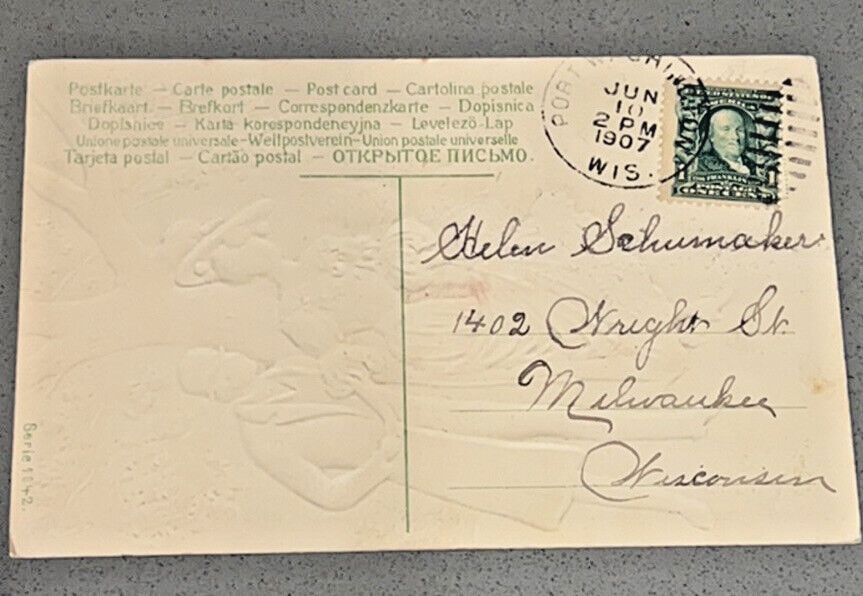 Postkarte — Carte postale — Post card — Cartolina postale
Briefkaart — Brefkort — Correspondenzkarte — Dopisnica
Dopisnice — Karta korespondencyjna — Levelező-Lap
Unione postale universale-Weltpostverein-Union postale universelle
Tarjeta postal — Cartão postal — ОТКРЫТОЕ ПИСЬМО.
PORT WASHINGTON
JUN
10
2 PM
1907
WIS.
FRANKLIN
ONE CENT
Helen Schumaker
1402 Wright St.
Milwaukee
Wisconsin
Serie 1042.